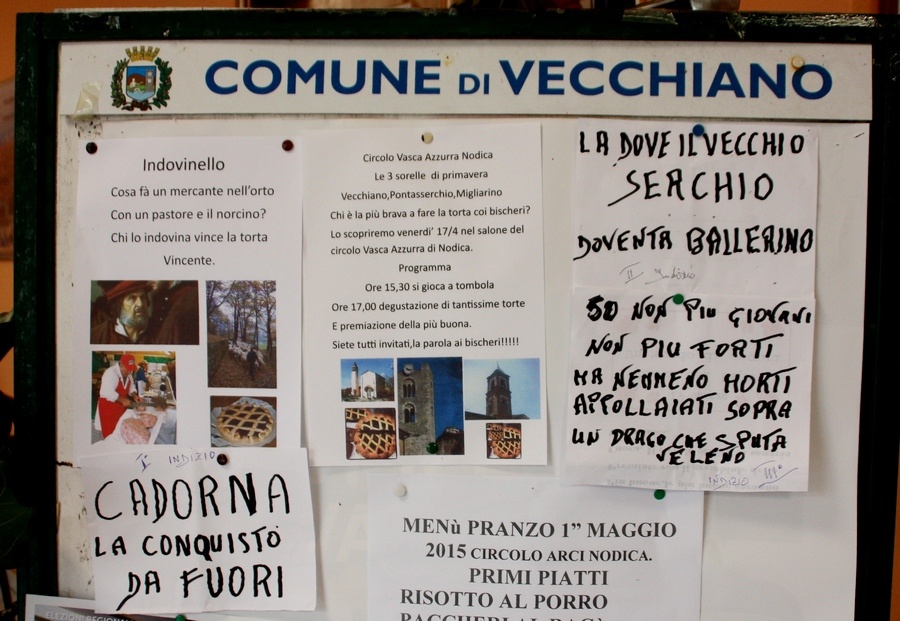 COMUNE DI VECCHIANO
Indovinello
Cosa fà un mercante nell'orto
Con un pastore e il norcino?
Chi lo indovina vince la torta
Vincente.
I° INDIZIO
CADORNA
LA CONQUISTÒ
DA FUORI
Circolo Vasca Azzurra Nodica
Le 3 sorelle di primavera
Vecchiano,Pontasserchio,Migliarino
Chi è la più brava a fare la torta coi bischeri?
Lo scopriremo venerdi' 17/4 nel salone del
circolo Vasca Azzurra di Nodica.
Programma
Ore 15,30 si gioca a tombola
Ore 17,00 degustazione di tantissime torte
E premiazione della più buona.
Siete tutti invitati,la parola ai bischeri!!!!!
LA DOVE IL VECCHIO
SERCHIO
DOVENTA BALLERINO
II Indizio
SO NON PIU GIOVANI
NON PIU FORTI
MA NEMMENO MORTI
APPOLLAIATI SOPRA
UN DRAGO CHE SPUTA
VELENO
INDIZIO III°
MENù PRANZO 1" MAGGIO
2015 CIRCOLO ARCI NODICA.
PRIMI PIATTI
RISOTTO AL PORRO
PACCHERI AL RAGù
ELEZIONI REGIONALI